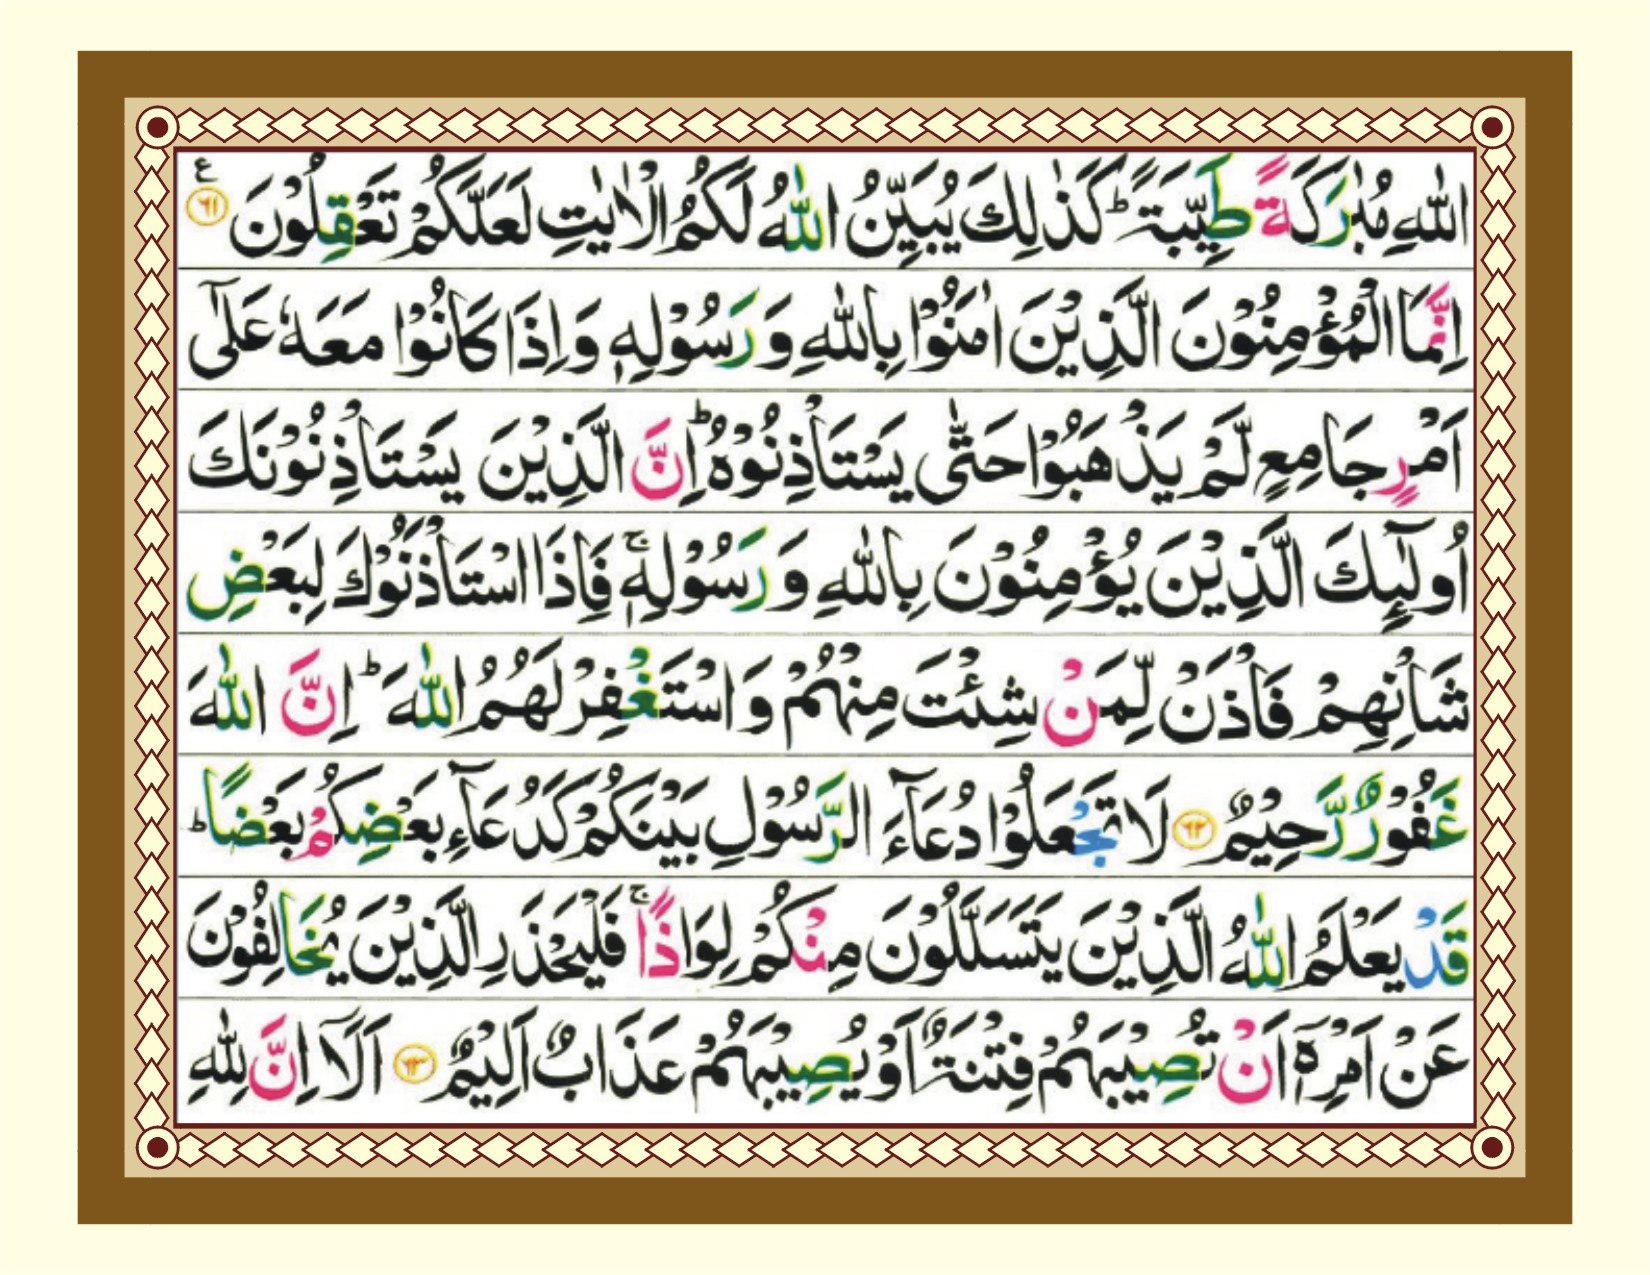 اللّٰهِ مُبٰرَكَةً طَيِّبَةً ؕ كَذٰلِكَ يُبَيِّنُ اللّٰهُ لَكُمُ الْاٰيٰتِ لَعَلَّكُمْ تَعْقِلُوْنَ ۶۱ ع
اِنَّمَا الْمُؤْمِنُوْنَ الَّذِيْنَ اٰمَنُوْا بِاللّٰهِ وَ رَسُوْلِهٖ وَاِذَا كَانُوْا مَعَهٗ عَلٰۤى
اَمْرٍ جَامِعٍ لَّمْ يَذْهَبُوْا حَتّٰى يَسْتَاْذِنُوْهُ ؕ اِنَّ الَّذِيْنَ يَسْتَاْذِنُوْنَكَ
اُولٰٓئِكَ الَّذِيْنَ يُؤْمِنُوْنَ بِاللّٰهِ وَ رَسُوْلِهٖ ۚ فَاِذَا اسْتَاْذَنُوْكَ لِبَعْضِ
شَاْنِهِمْ فَاْذَنْ لِّمَنْ شِئْتَ مِنْهُمْ وَ اسْتَغْفِرْ لَهُمُ اللّٰهَ ؕ اِنَّ اللّٰهَ
غَفُوْرٌ رَّحِيْمٌ ۶۲ لَا تَجْعَلُوْا دُعَآءَ الرَّسُوْلِ بَيْنَكُمْ كَدُعَآءِ بَعْضِكُمْ بَعْضًا ؕ
قَدْ يَعْلَمُ اللّٰهُ الَّذِيْنَ يَتَسَلَّلُوْنَ مِنْكُمْ لِوَاذًا ۚ فَلْيَحْذَرِ الَّذِيْنَ يُخَالِفُوْنَ
عَنْ اَمْرِهٖۤ اَنْ تُصِيْبَهُمْ فِتْنَةٌ اَوْ يُصِيْبَهُمْ عَذَابٌ اَلِيْمٌ ۶۳ اَلَاۤ اِنَّ لِلّٰهِ